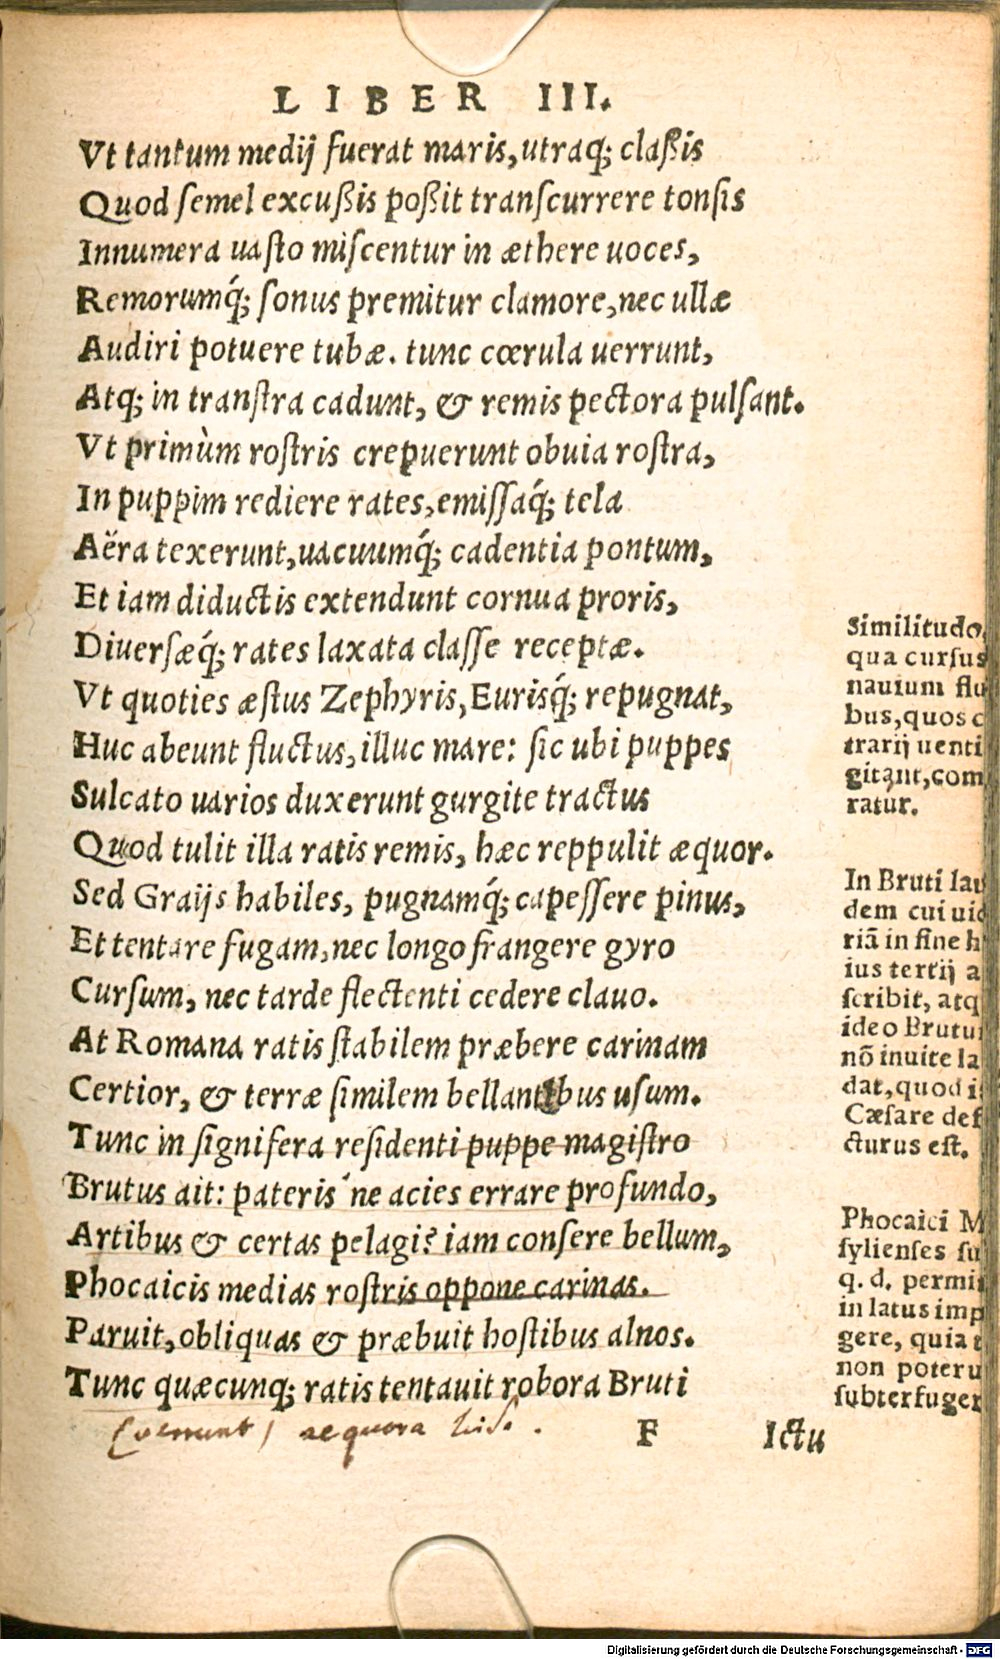 LIBER III.
Vt tantum medij fuerat maris, utraq; claßis
Quod semel excußis poßit transcurrere tonsis
Innumera uasto miscentur in æthere uoces,
Remorumq́; sonus premitur clamore, nec ullæ
Audiri potuere tubæ. tunc cœrula uerrunt,
Atq; in transtra cadunt, & remis pectora pulsant.
Vt primùm rostris crepuerunt obuia rostra,
In puppim rediere rates, emissaq́; tela
Aëra texerunt, uacuumq́; cadentia pontum,
Et iam diductis extendunt cornua proris,
Diuersæq́; rates laxata classe receptæ.
Vt quoties æstus Zephyris, Eurisq́; repugnat,
Huc abeunt fluctus, illuc mare: sic ubi puppes
Sulcato uarios duxerunt gurgite tractus
Quod tulit illa ratis remis, hæc reppulit æquor.
Sed Graijs habiles, pugnamq́; capessere pinus,
Et tentare fugam, nec longo frangere gyro
Cursum, nec tarde flectenti cedere clauo.
At Romana ratis stabilem præbere carinam
Certior, & terræ similem bellantibus usum.
Tunc in signifera residenti puppe magistro
Brutus ait: pateris ne acies errare profundo,
Artibus & certas pelagi? iam consere bellum,
Phocaicis medias rostris oppone carinas.
Paruit, obliquas & præbuit hostibus alnos.
Tunc quæcunq; ratis tentauit robora Bruti
aequora
F Ictu
Similitudo,
qua cursus
nauium flu
bus, quos c
trarij uenti
gitant, com
ratur.
In Bruti lau
dem cui uic
riã in fine h
ius tertij a
scribit, atq
ideo Brutu
nõ inuite la
dat, quod i
Cæsare def
cturus est.
Phocaici M
sylienses su
q. d. permi
in latus imp
gere, quia t
non poteru
subterfuger
Digitalisierung gefördert durch die Deutsche Forschungsgemeinschaft - DFG